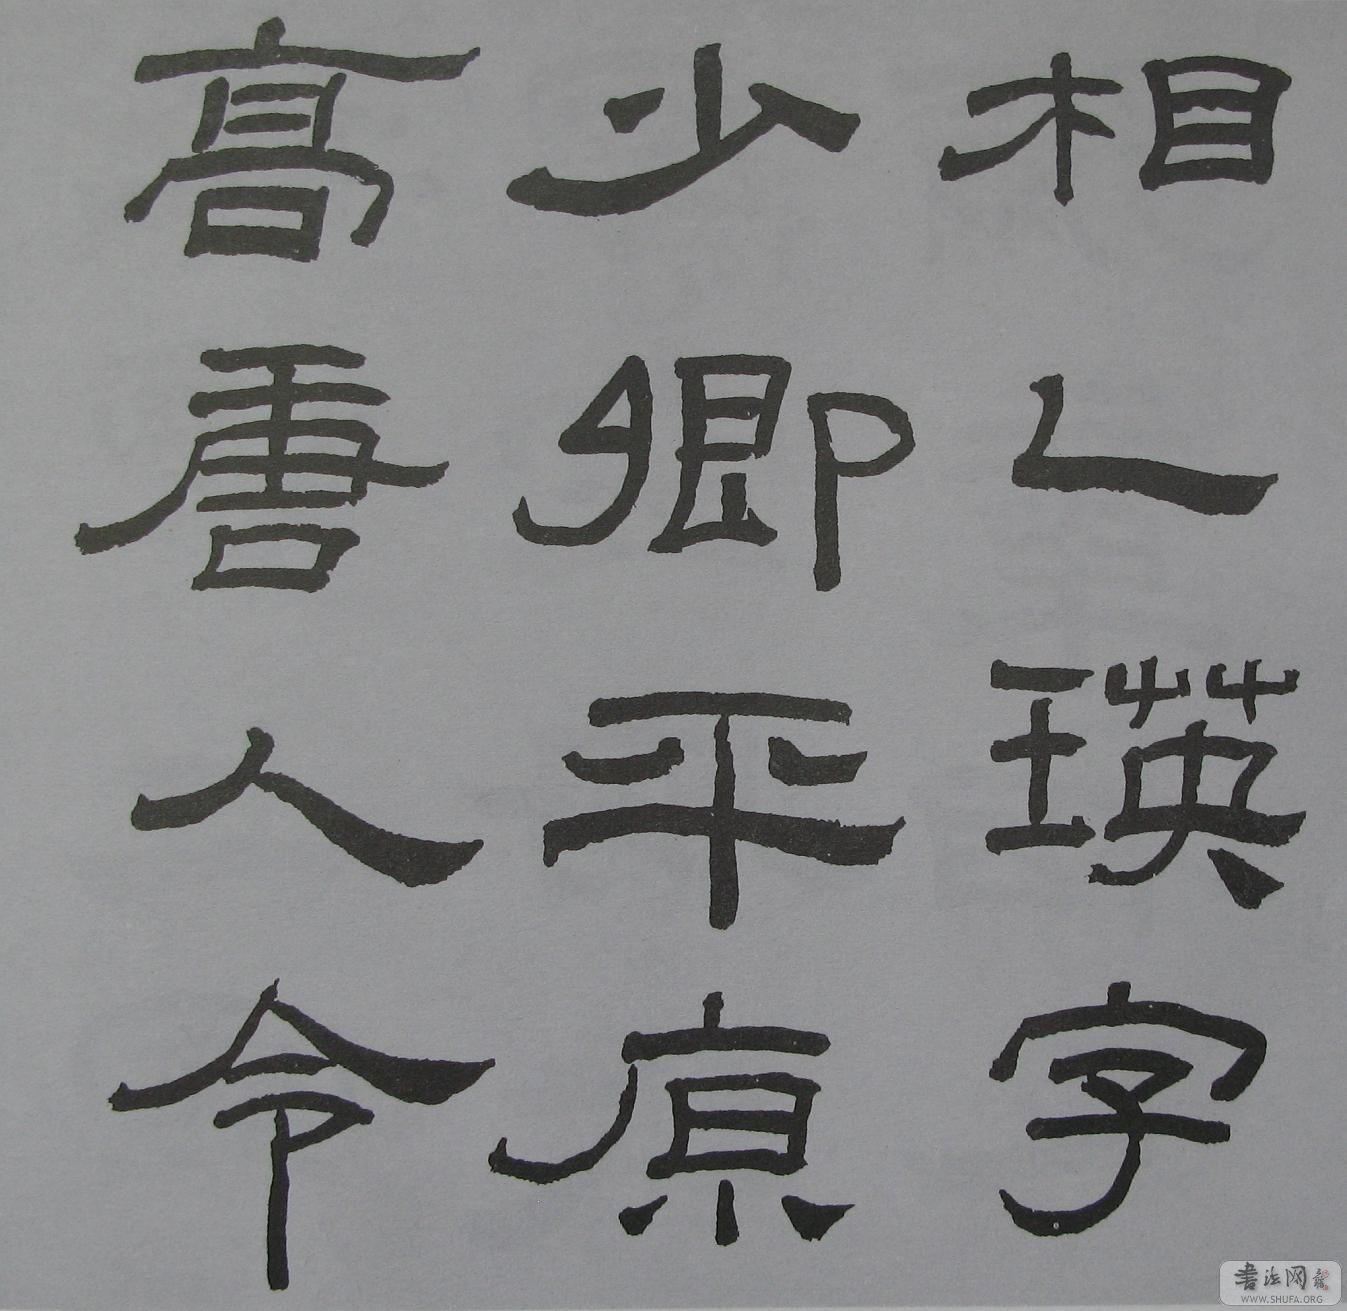 相乚瑛字
少卿平原
高唐人令
書法网
WWW.SHUFA.ORG